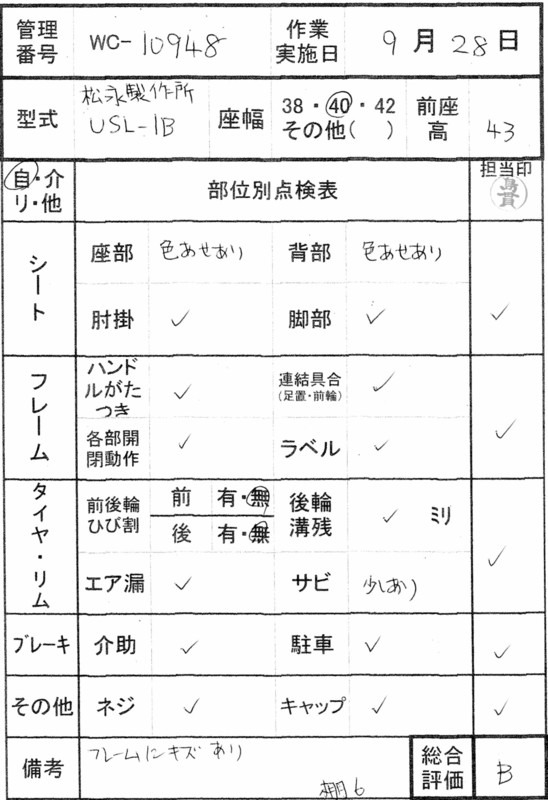 管理番号 WC-10948 作業実施日 9月28日
型式 松永製作所 USL-1B 座幅 38・40・42 その他( ) 前座高 43
自・介 リ・他 部位別点検表 担当印 鳥貫
シート 座部 色あせあり 背部 色あせあり
肘掛 ✓ 脚部 ✓ ✓
フレーム ハンドルがたつき ✓ 連結具合 (足置・前輪) ✓
各部開閉動作 ✓ ラベル ✓ ✓
タイヤ・リム 前後輪ひび割 前 有・無 後 有・無 後輪溝残 ✓ ミリ
エア漏 ✓ サビ 少しあり ✓
ブレーキ 介助 ✓ 駐車 ✓ ✓
その他 ネジ ✓ キャップ ✓ ✓
備考 フレームにキズあり 棚6 総合評価 B